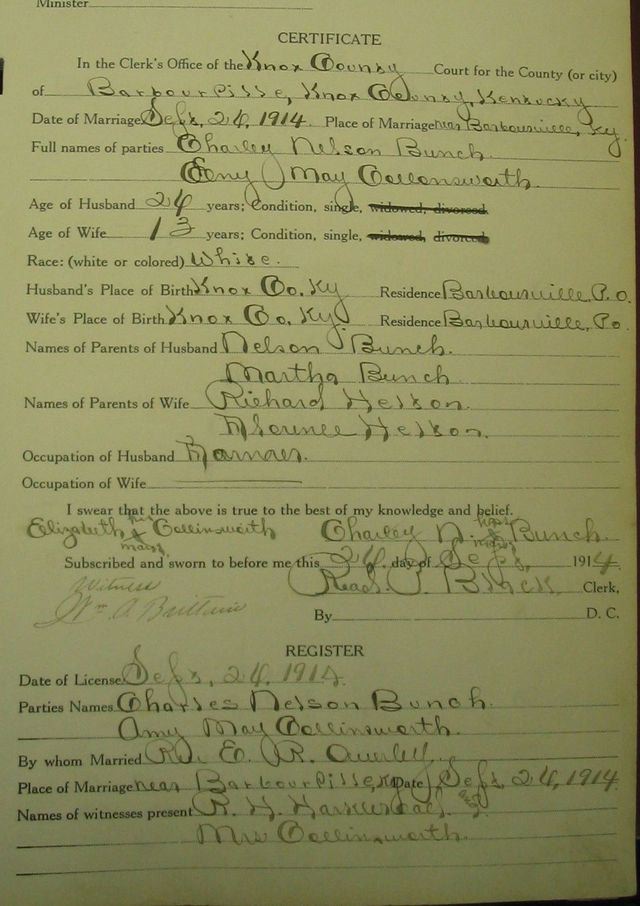 Minister
CERTIFICATE
In the Clerk's Office of the Knox County Court for the County (or city)
of Barbourville, Knox County, Kentucky
Date of Marriage Sept. 24, 1914 Place of Marriage near Barbourville, Ky.
Full names of parties Charley Nelson Bunch.
Amy May Collinsworth.
Age of Husband 24 years; Condition, single, widowed, divorced
Age of Wife 13 years; Condition, single, widowed, divorced
Race: (white or colored) White.
Husband's Place of Birth Knox Co. Ky Residence Barbourville, P.O.
Wife's Place of Birth Knox Co. Ky. Residence Barbourville, Po
Names of Parents of Husband Nelson Bunch.
Martha Bunch
Names of Parents of Wife Richard Helton.
Florence Helton.
Occupation of Husband Farmer.
Occupation of Wife
I swear that the above is true to the best of my knowledge and belief.
Elizabeth her x mark Collinsworth Charley N. his x mark Bunch.
Subscribed and sworn to before me this 24 day of Sept, 1914
Read P. Black Clerk,
Witness
Wm A Brittain
By D. C.
REGISTER
Date of License Sept, 24, 1914.
Parties Names Charles Nelson Bunch.
Amy May Collinsworth.
By whom Married Rev. E. R.
Place of Marriage near Barbourville, Ky Date Sept. 24, 1914
Names of witnesses present R. H.
Mrs Collinsworth.